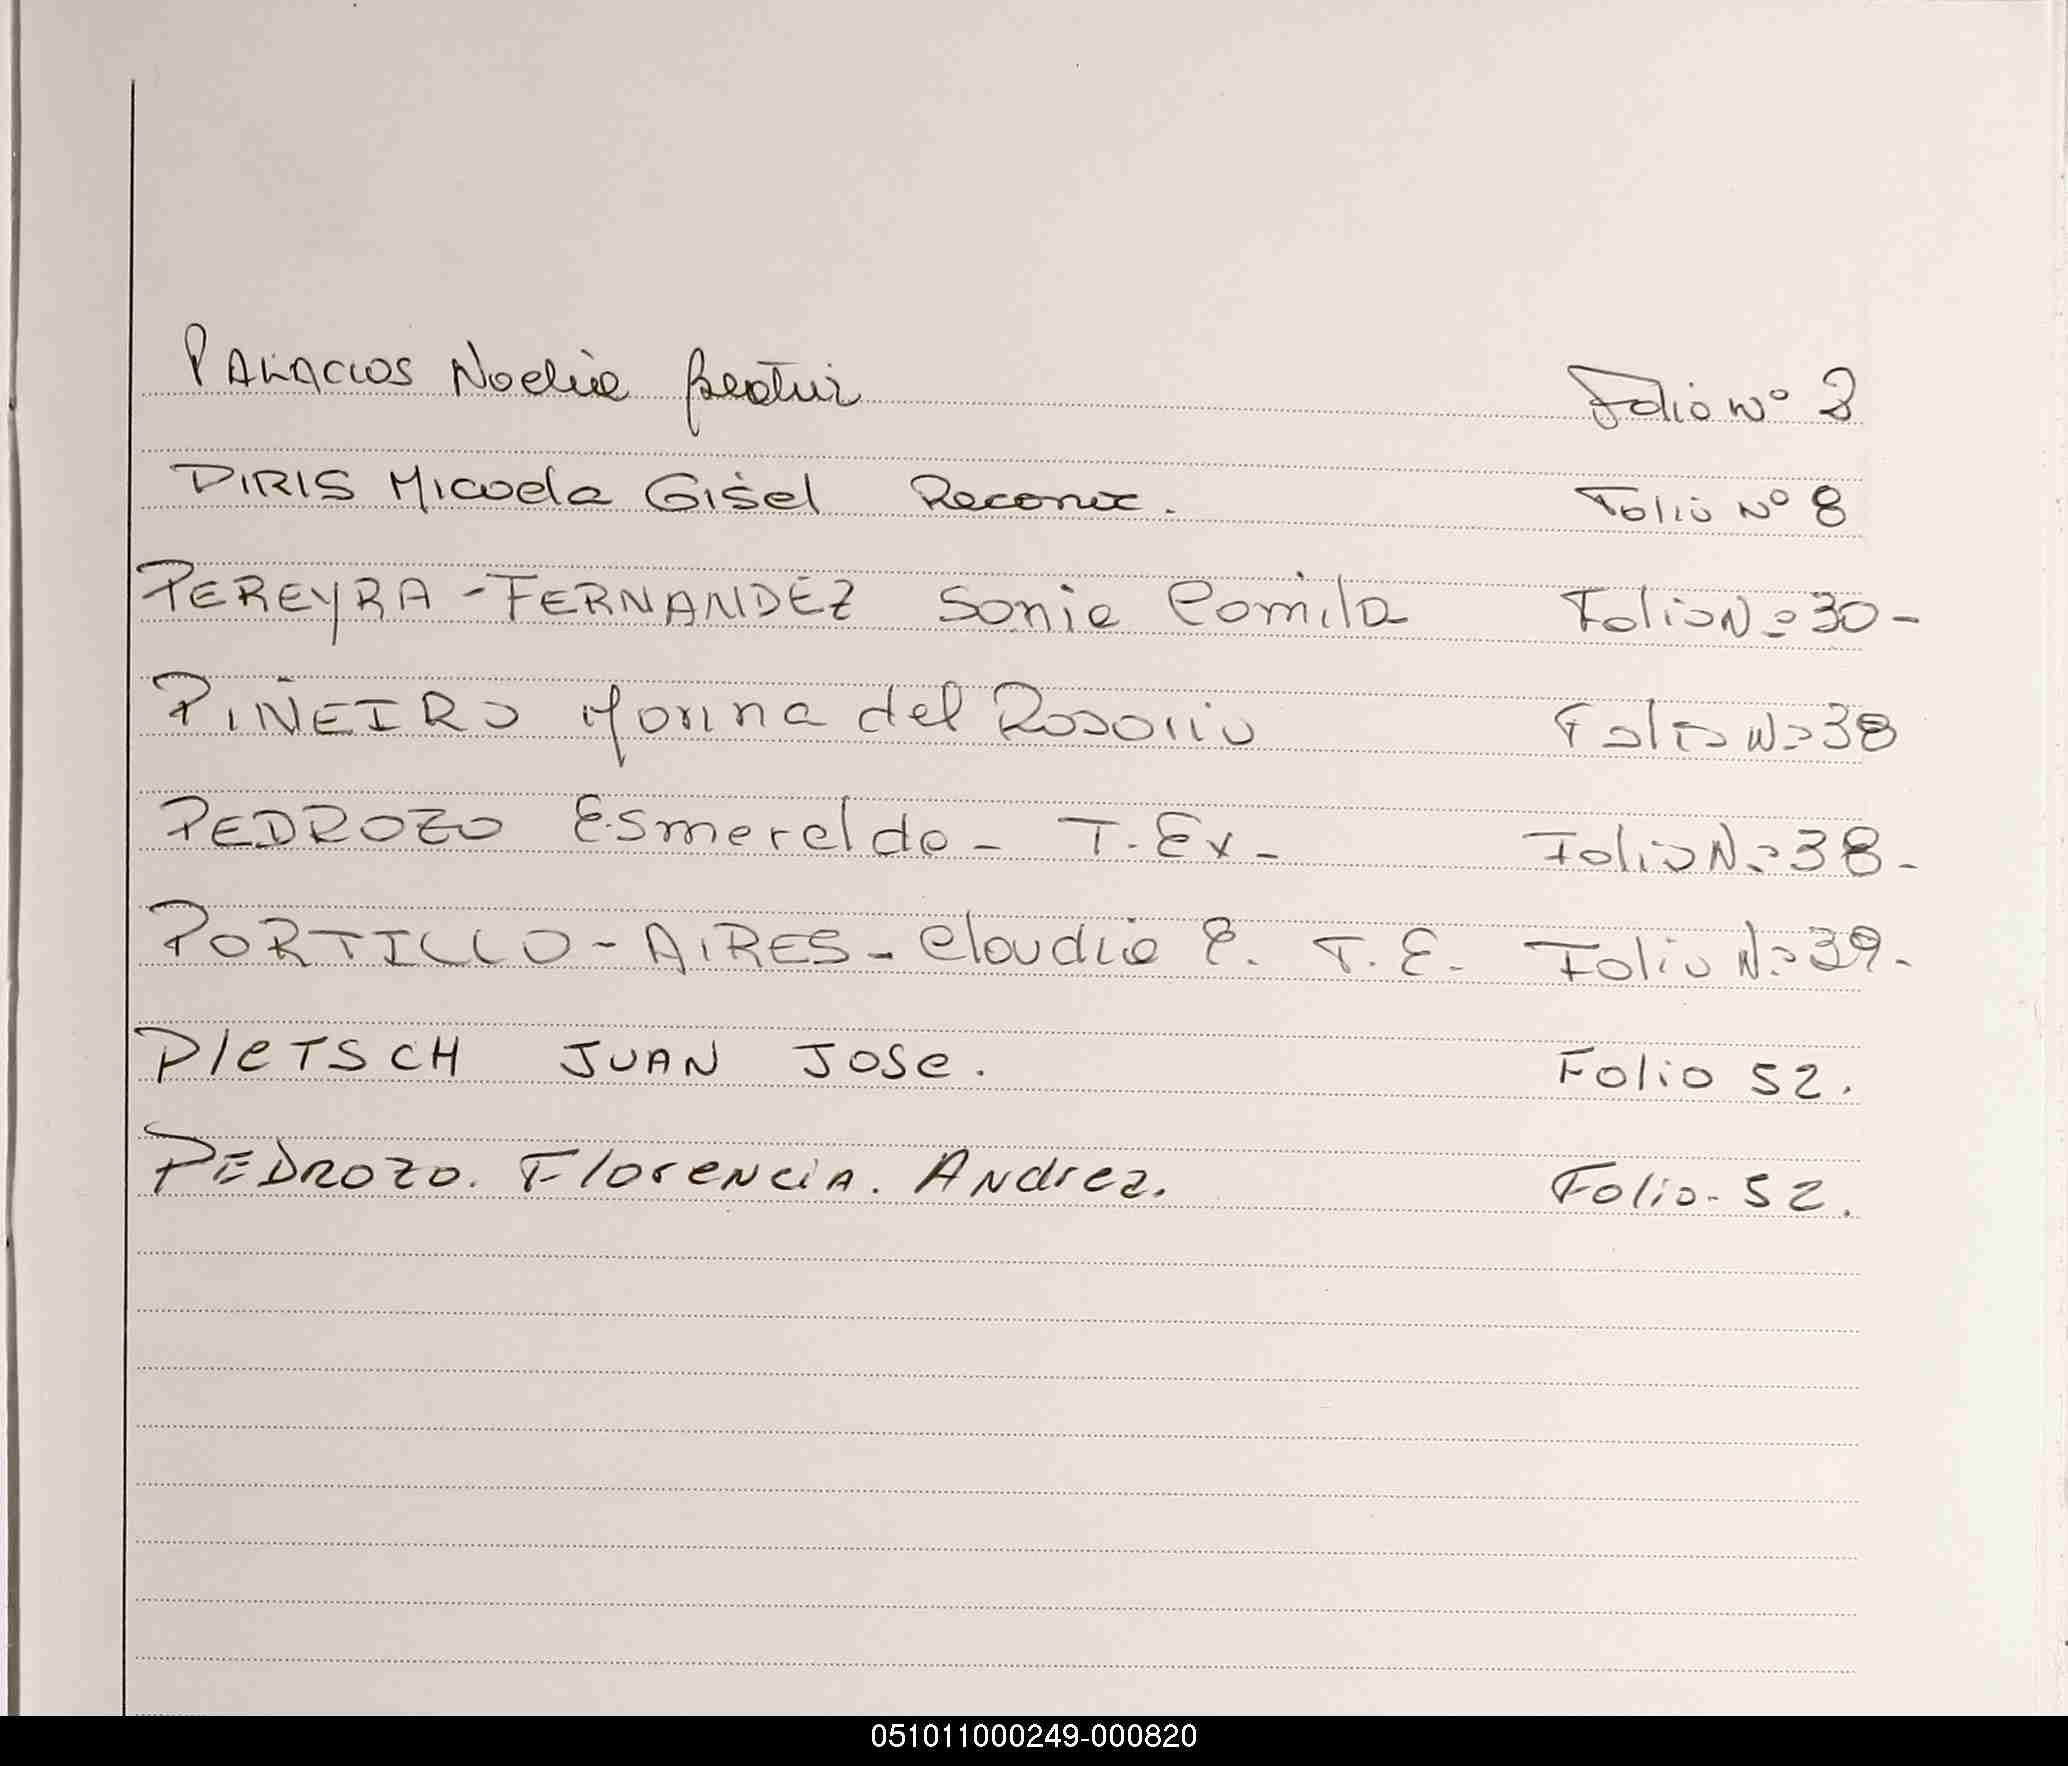 PALACIOS Noelia Beatriz Folio Nº 2
PIRIS Micaela Gisel Reconoc. Folio Nº 8
PEREYRA - FERNANDEZ Sonia Camila Folio Nº 30 -
PIÑEIRO Marina del Rosario Folio Nº 38
PEDROZO Esmeralda - T. Ex - Folio Nº 38 -
PORTILLO - AIRES - Claudia E. T. E. Folio Nº 39 -
PIETSCH JUAN JOSE. Folio 52.
PEDROZO. Florencia. Andrea. Folio - 52.
051011000249-000820